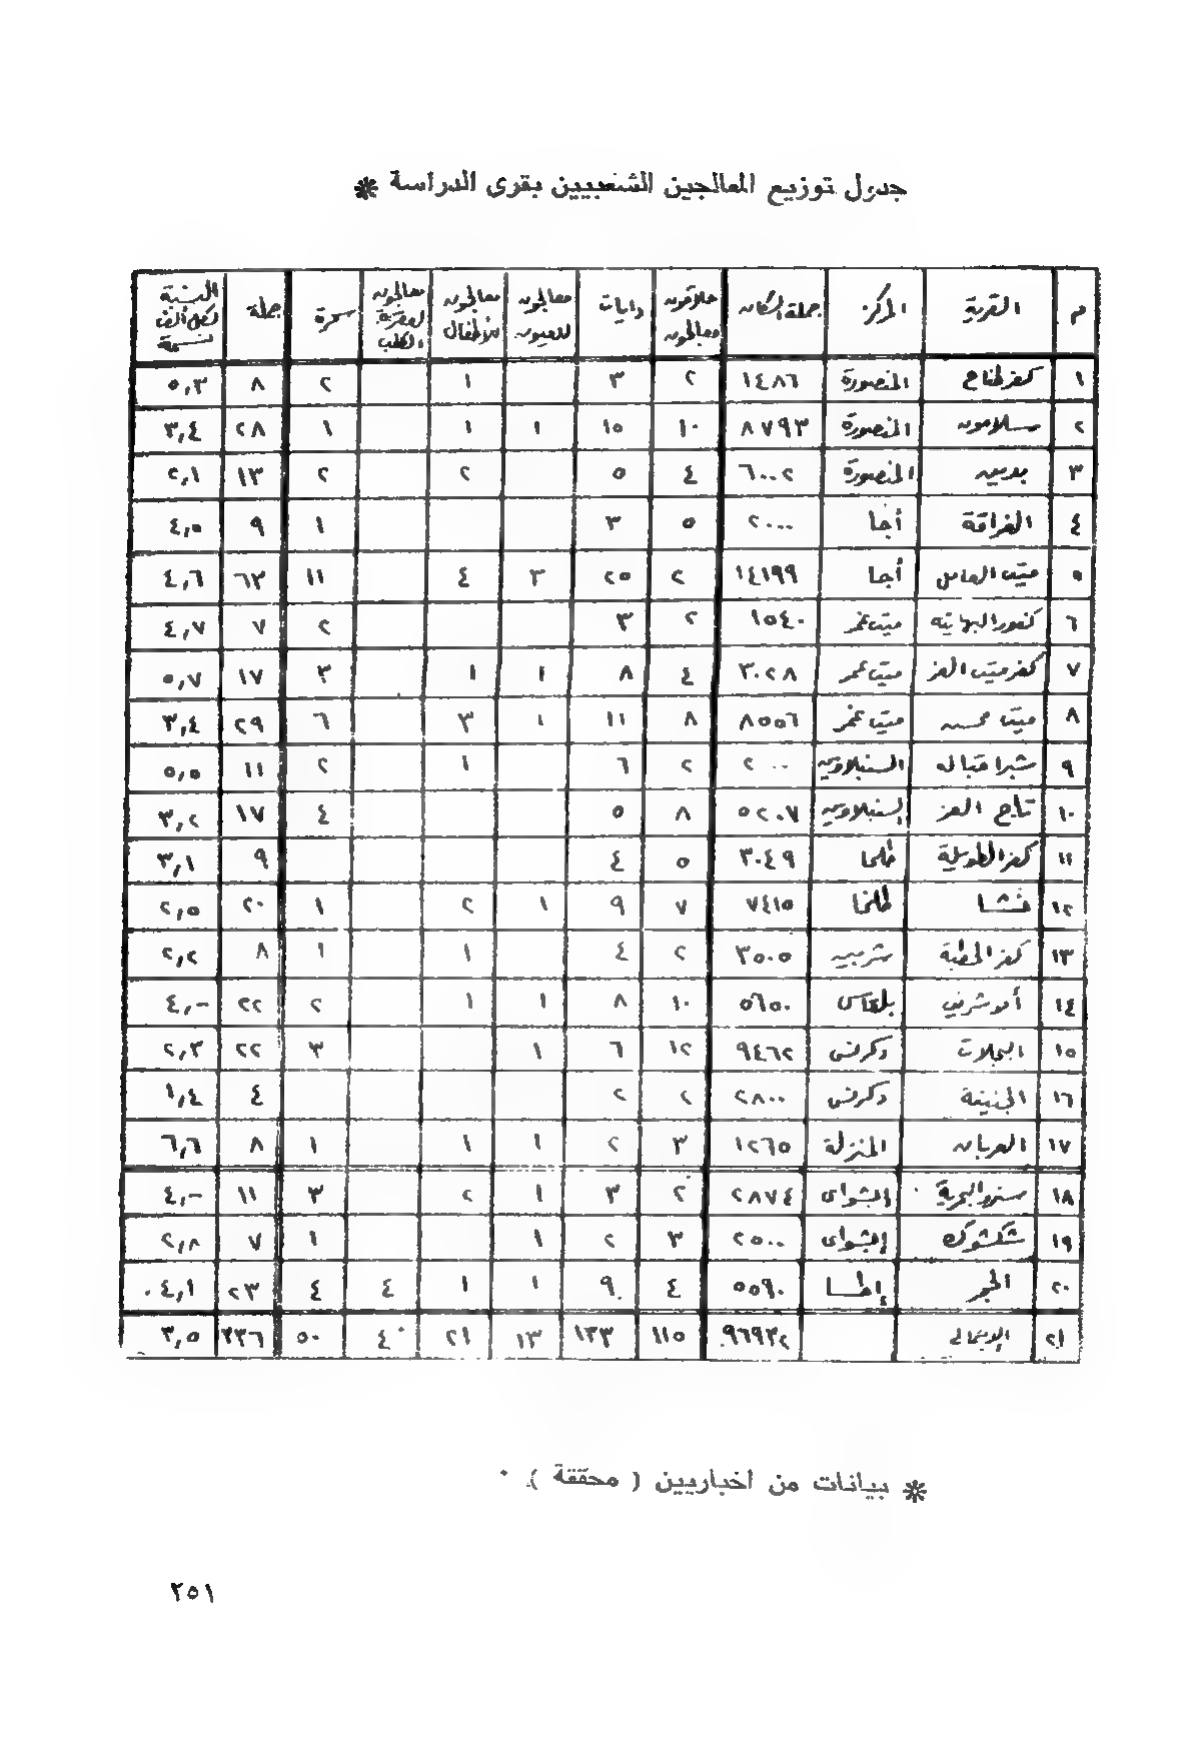 جدول توزيع المعالجين الشعبيين بقرى الدراسة *
م | القرية | المركز | جملة السكان | حلاقون معالجون | دايات | معالجون للعيون | معالجون للأطفال | معالجون لعقر الكلب | سحرة | جملة | النسبة لكل ألف نسمة
١ | كفر لخناح | المنصورة | ١٤٨٦ | ٢ | ٣ | | ١ | | ٢ | ٨ | ٥,٣
٢ | سلامون | المنصورة | ٨٧٩٣ | ١٠ | ١٥ | ١ | ١ | | ١ | ٢٨ | ٣,٤
٣ | بدين | المنصورة | ٦٠٠٢ | ٤ | ٥ | | ٢ | | ٢ | ١٣ | ٢,١
٤ | الغراقة | أجا | ٢٠٠٠ | ٥ | ٣ | | | | ١ | ٩ | ٤,٥
٥ | ميت العامل | أجا | ١٤١٩٩ | ٢ | ٢٥ | ٣ | ٤ | | ١١ | ٦٣ | ٤,٦
٦ | كفور البهايته | ميت غمر | ١٥٤٠ | ٢ | ٣ | | | | ٢ | ٧ | ٤,٧
٧ | كفر ميت العز | ميت غمر | ٣٠٢٨ | ٤ | ٨ | ١ | ١ | | ٣ | ١٧ | ٥,٧
٨ | ميت محسن | ميت غمر | ٨٥٥٦ | ٨ | ١١ | ١ | ٣ | | ٦ | ٢٩ | ٣,٤
٩ | شبرا قباله | السنبلاوين | ٢٠٠٠ | ٢ | ٦ | | ١ | | ٢ | ١١ | ٥,٥
١٠ | تاج العز | السنبلاوين | ٥٢٠٧ | ٨ | ٥ | | | | ٤ | ١٧ | ٣,٢
١١ | كفر الطويلة | طلخا | ٣٠٤٩ | ٥ | ٤ | | | | | ٩ | ٣,١
١٢ | نشا | طلخا | ٧٤١٥ | ٧ | ٩ | ١ | ٢ | | ١ | ٢٠ | ٢,٥
١٣ | كفر الحطبة | شربين | ٣٥٠٥ | ٢ | ٤ | | ١ | | ١ | ٨ | ٢,٢
١٤ | أبو شرفي | بلقاس | ٥٦٥٠ | ١٠ | ٨ | ١ | ١ | | ٢ | ٢٢ | ٤,-
١٥ | البجلات | دكرنس | ٩٤٦٢ | ١٢ | ٦ | ١ | | | ٣ | ٢٢ | ٢,٣
١٦ | الجنينة | دكرنس | ٢٨٠٠ | ٢ | ٢ | | | | | ٤ | ١,٤
١٧ | العربان | المنزلة | ١٢٦٥ | ٣ | ٢ | ١ | ١ | | ١ | ٨ | ٦,٦
١٨ | سنرو البحرية | إبشواى | ٢٨٧٤ | ٢ | ٣ | ١ | ٢ | | ٣ | ١١ | ٤,-
١٩ | شكشوك | إبشواى | ٢٥٠٠ | ٣ | ٢ | ١ | | | ١ | ٧ | ٢,٨
٢٠ | الحجر | إطسا | ٥٥٩٠ | ٤ | ٩ | ١ | ١ | ٤ | ٤ | ٢٣ | ٤,١
٢١ | الإجمالي | | ٩٦٩٣٢ | ١١٥ | ١٣٣ | ١٣ | ٢١ | ٤ | ٥٠ | ٣٣٦ | ٣,٥
* بيانات من اخباريين ( محققة ) .
٢٥١